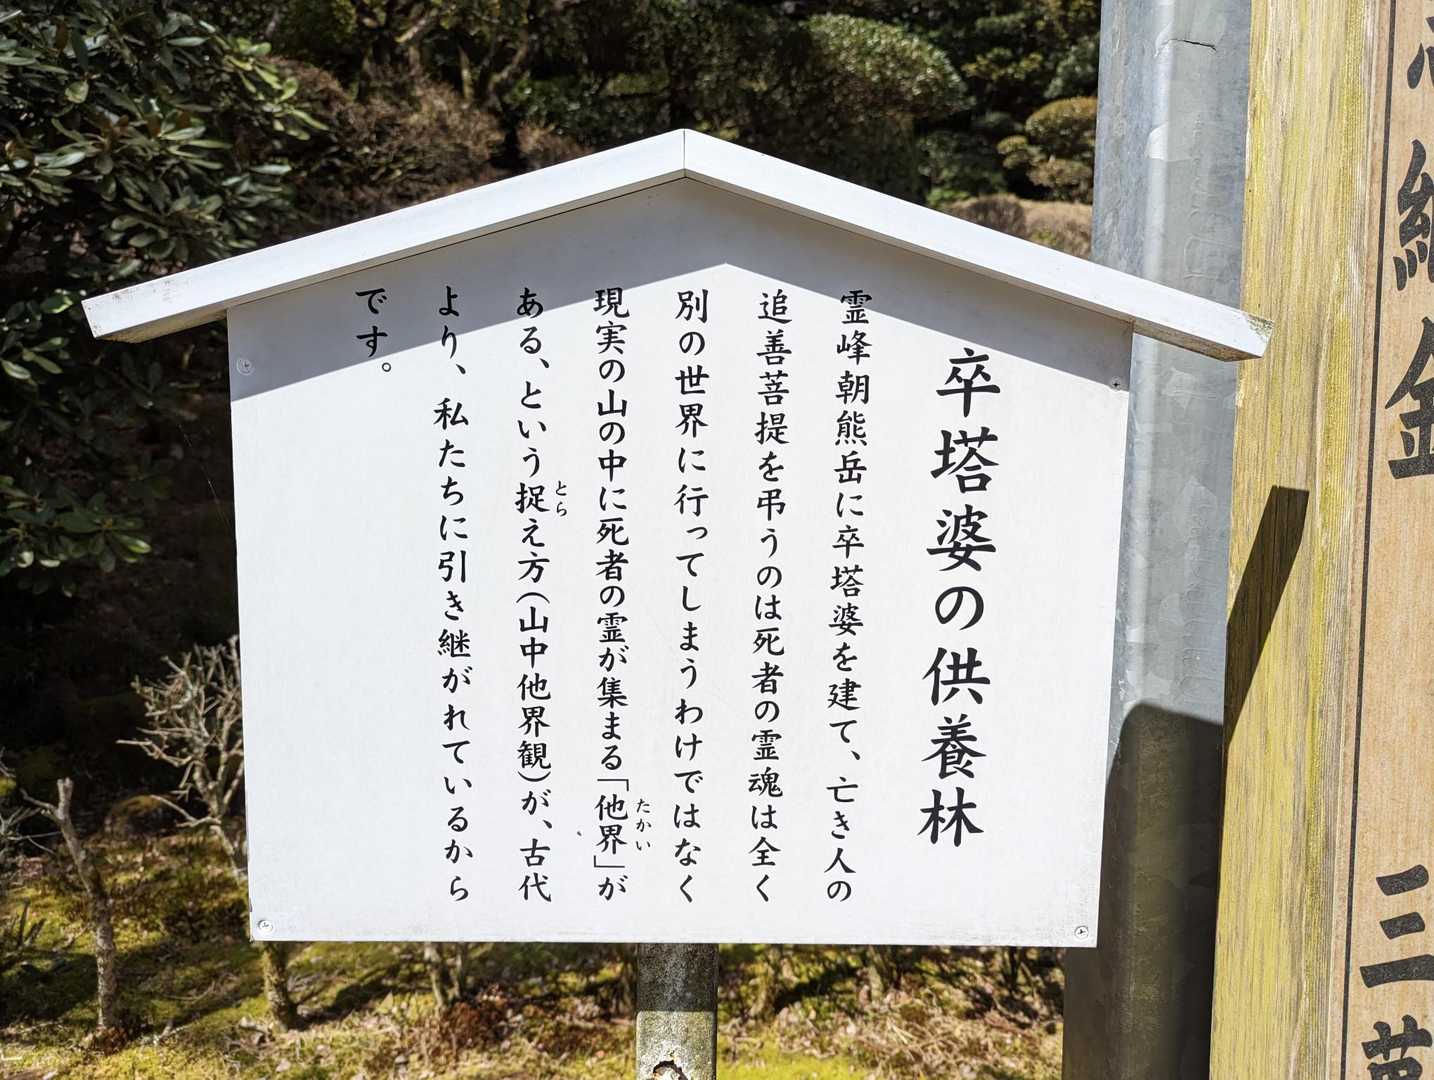 卒塔婆の供養林
霊峰朝熊岳に卒塔婆を建て、亡き人の
追善菩提を弔うのは死者の霊魂は全く
別の世界に行ってしまうわけではなく
現実の山の中に死者の霊が集まる「他界」が
たかい
ある、という捉え方（山中他界観）が、古代
とら
より、私たちに引き継がれているから
です。
三